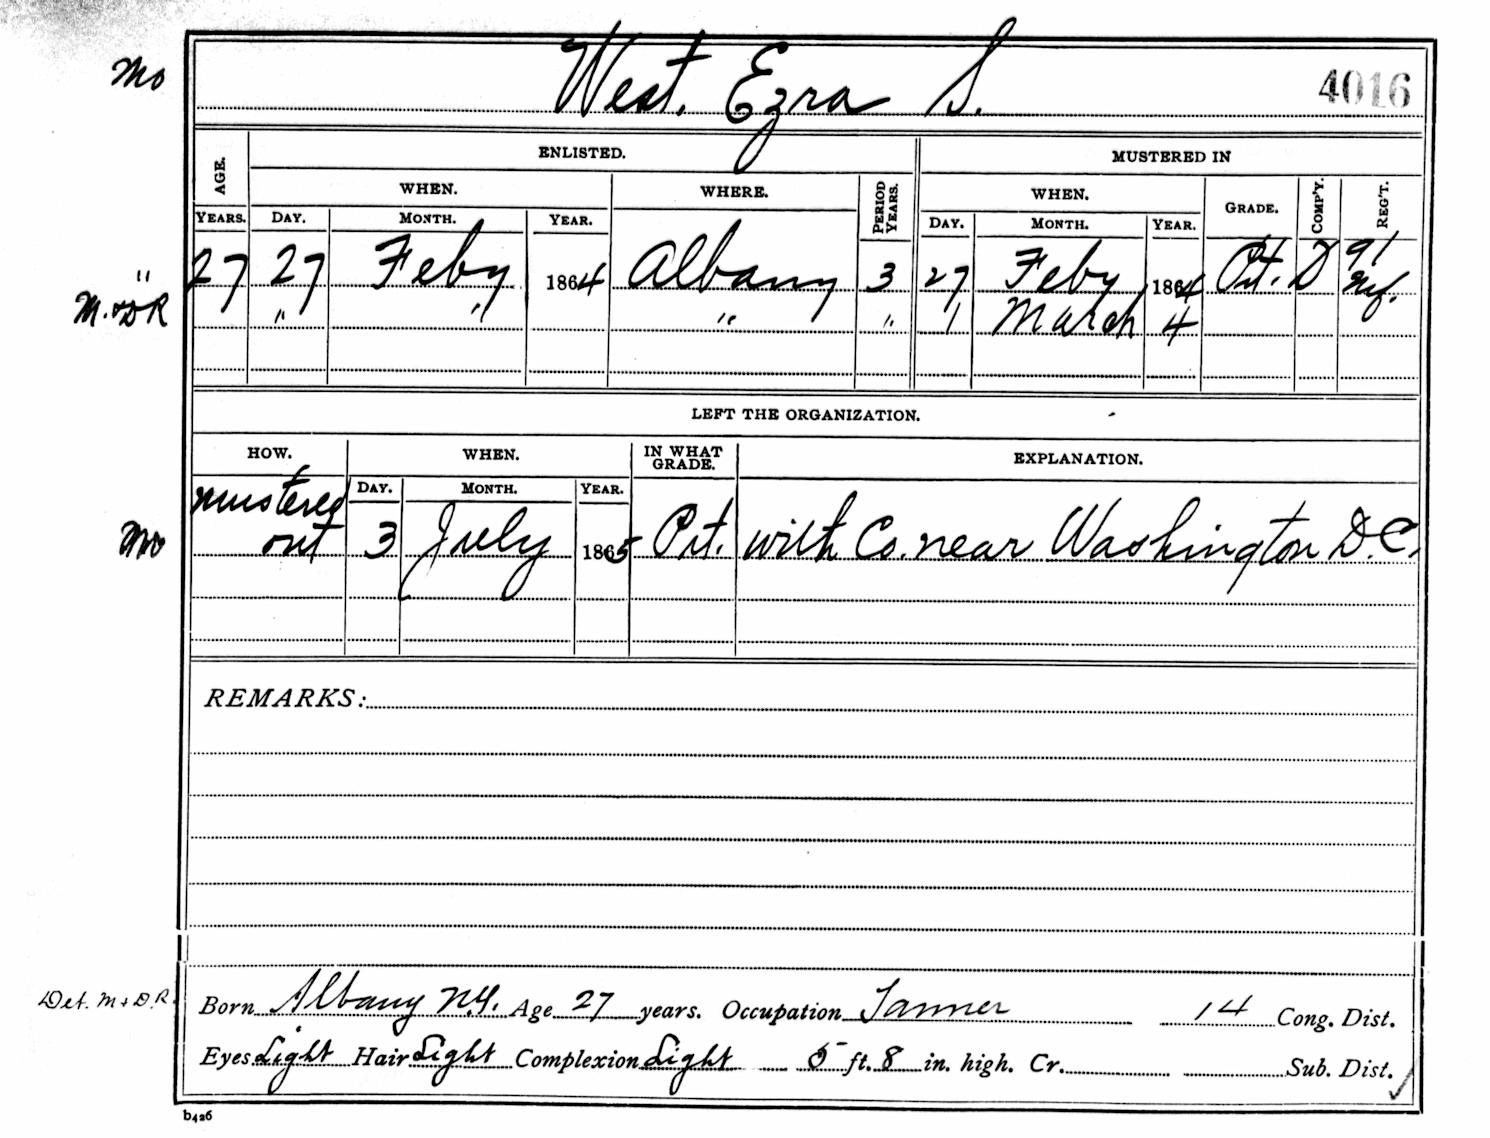 Mo West, Ezra S. 4016
ENLISTED. MUSTERED IN
AGE. WHEN. WHERE. PERIOD YEARS. WHEN. GRADE. COMP'Y. REG'T.
YEARS. DAY. MONTH. YEAR. DAY. MONTH. YEAR.
" 27 27 Feby 1864 Albany 3 27 Feby 1864 Pvt. D 91 NY.
M. & D R " " " " 1 March 4
LEFT THE ORGANIZATION.
HOW. WHEN. IN WHAT GRADE. EXPLANATION.
DAY. MONTH. YEAR.
mustered
Mo out 3 July 1865 Pvt. with Co. near Washington D.C.
REMARKS:
Det. M & D.R. Born Albany N.Y. Age 27 years. Occupation Tanner 14 Cong. Dist.
Eyes Light Hair Light Complexion Light 5 ft. 8 in. high. Cr. Sub. Dist.
b426